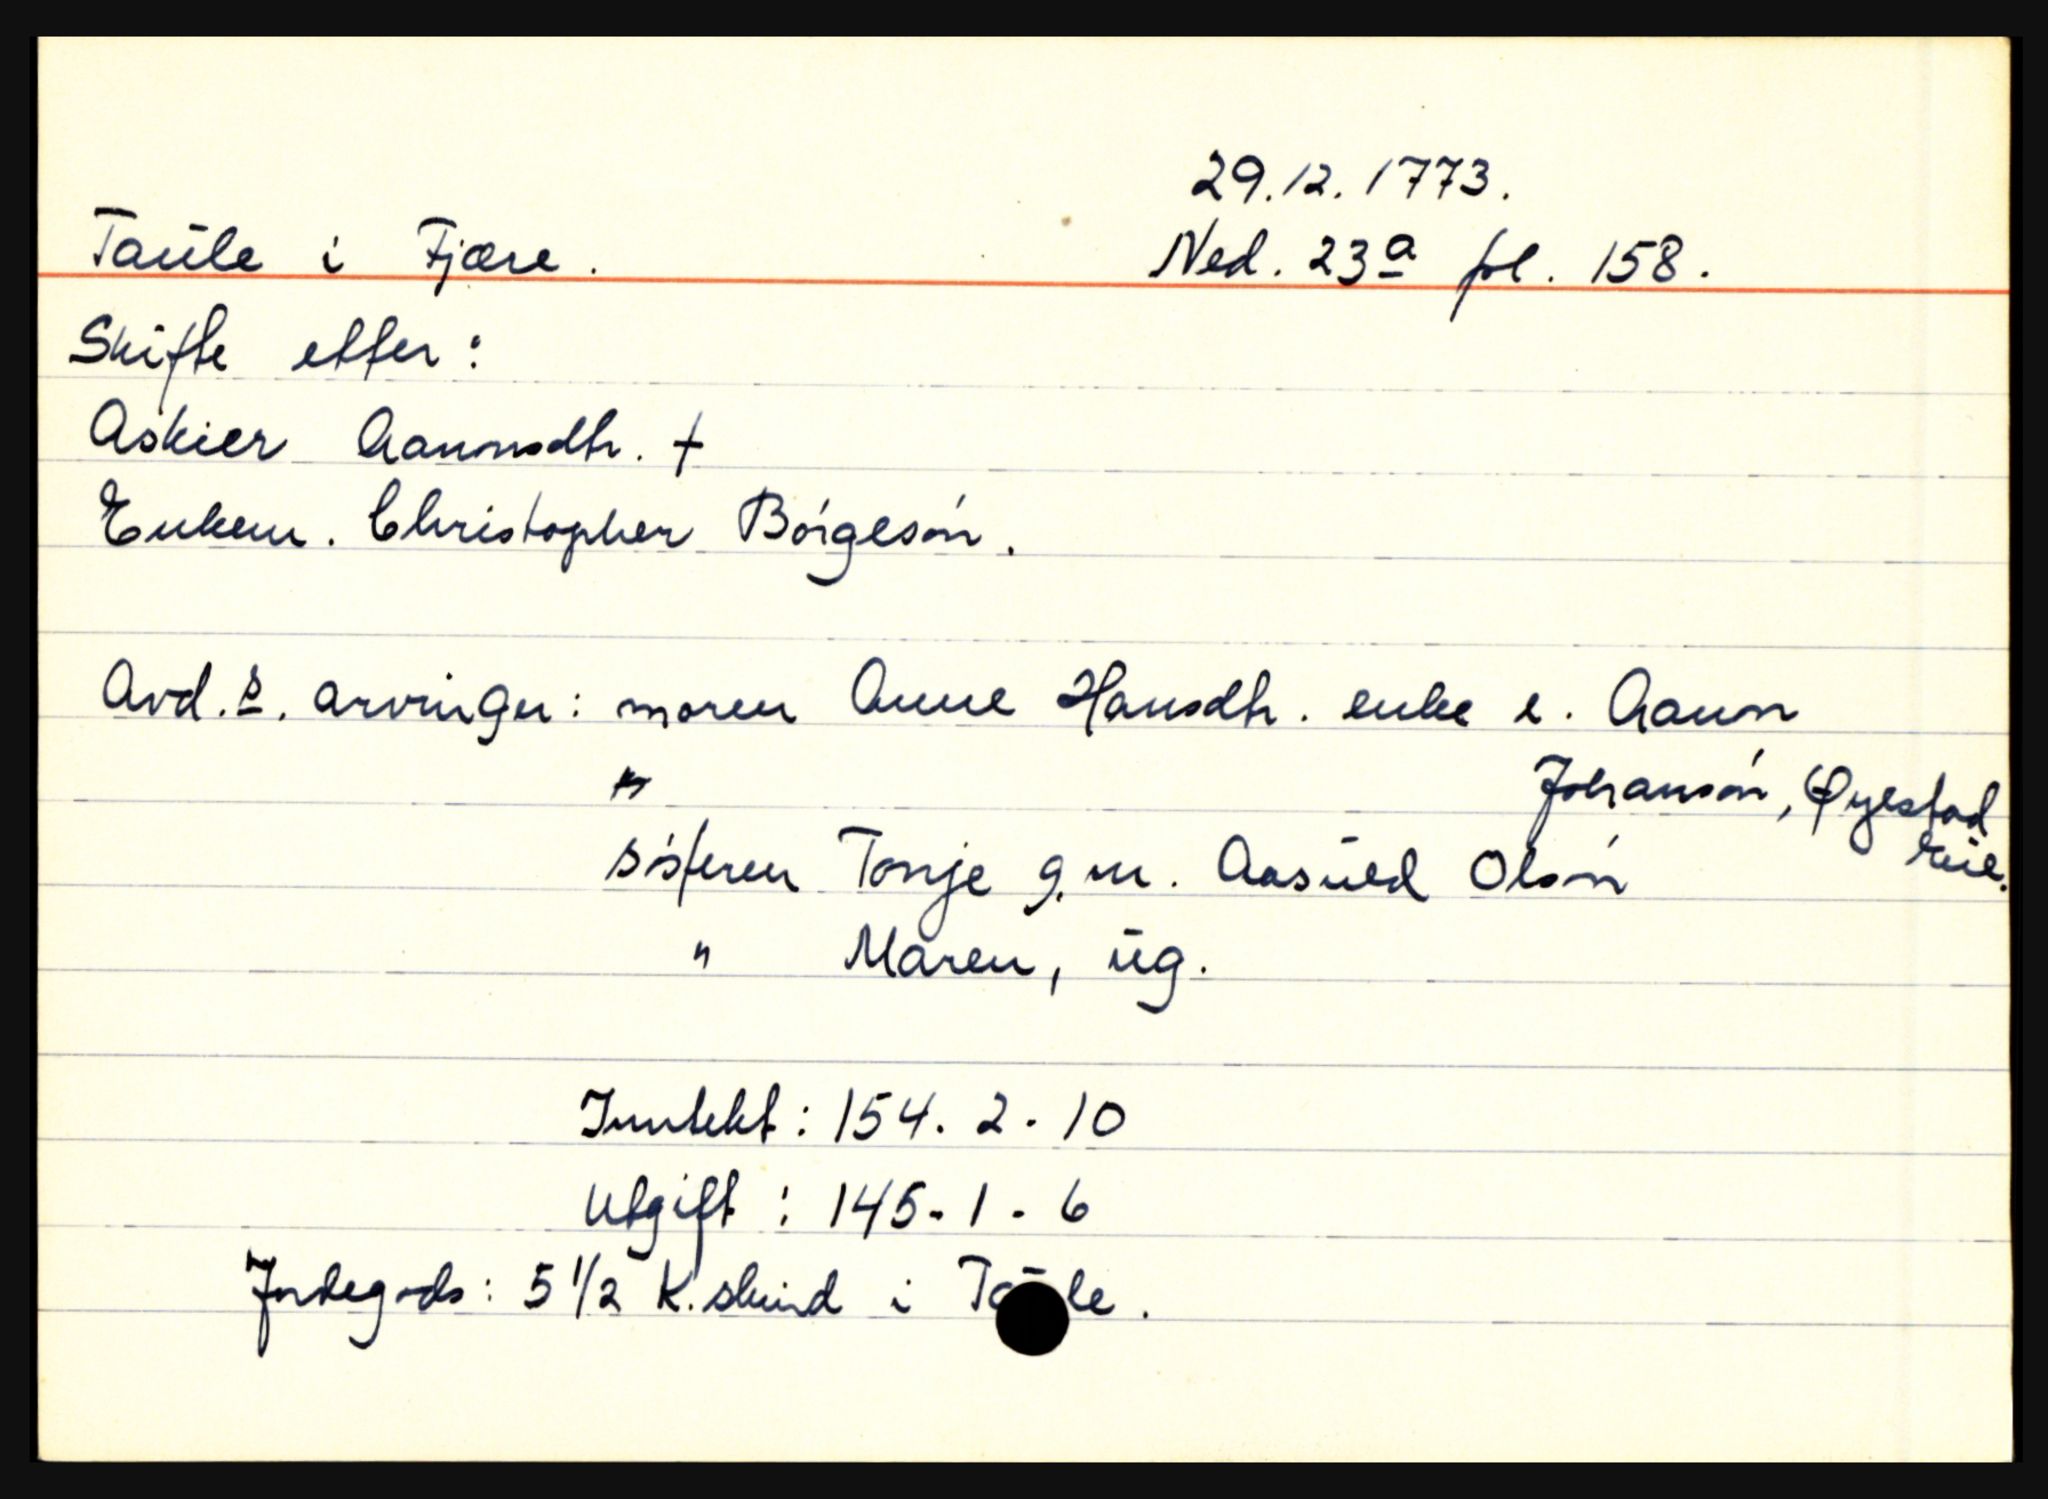 29.12.1773.
Taule i Fjære. Ned. 23a fol. 158.
Skifte etter:
Askier Aaonsdtr. †
Enkem. Christopher Börgesön.
Avd.s. arvinger: moren Anne Hansdtr. enke e. Aaon
Johansön, Øyestad
söfteren Tonje g.m. Aasuld Olsön
" Maren, ug.
Inntekt: 154. 2. 10
Utgift: 145. 1. 6
Jordegods: 5 1/2 K.skind i Taule.